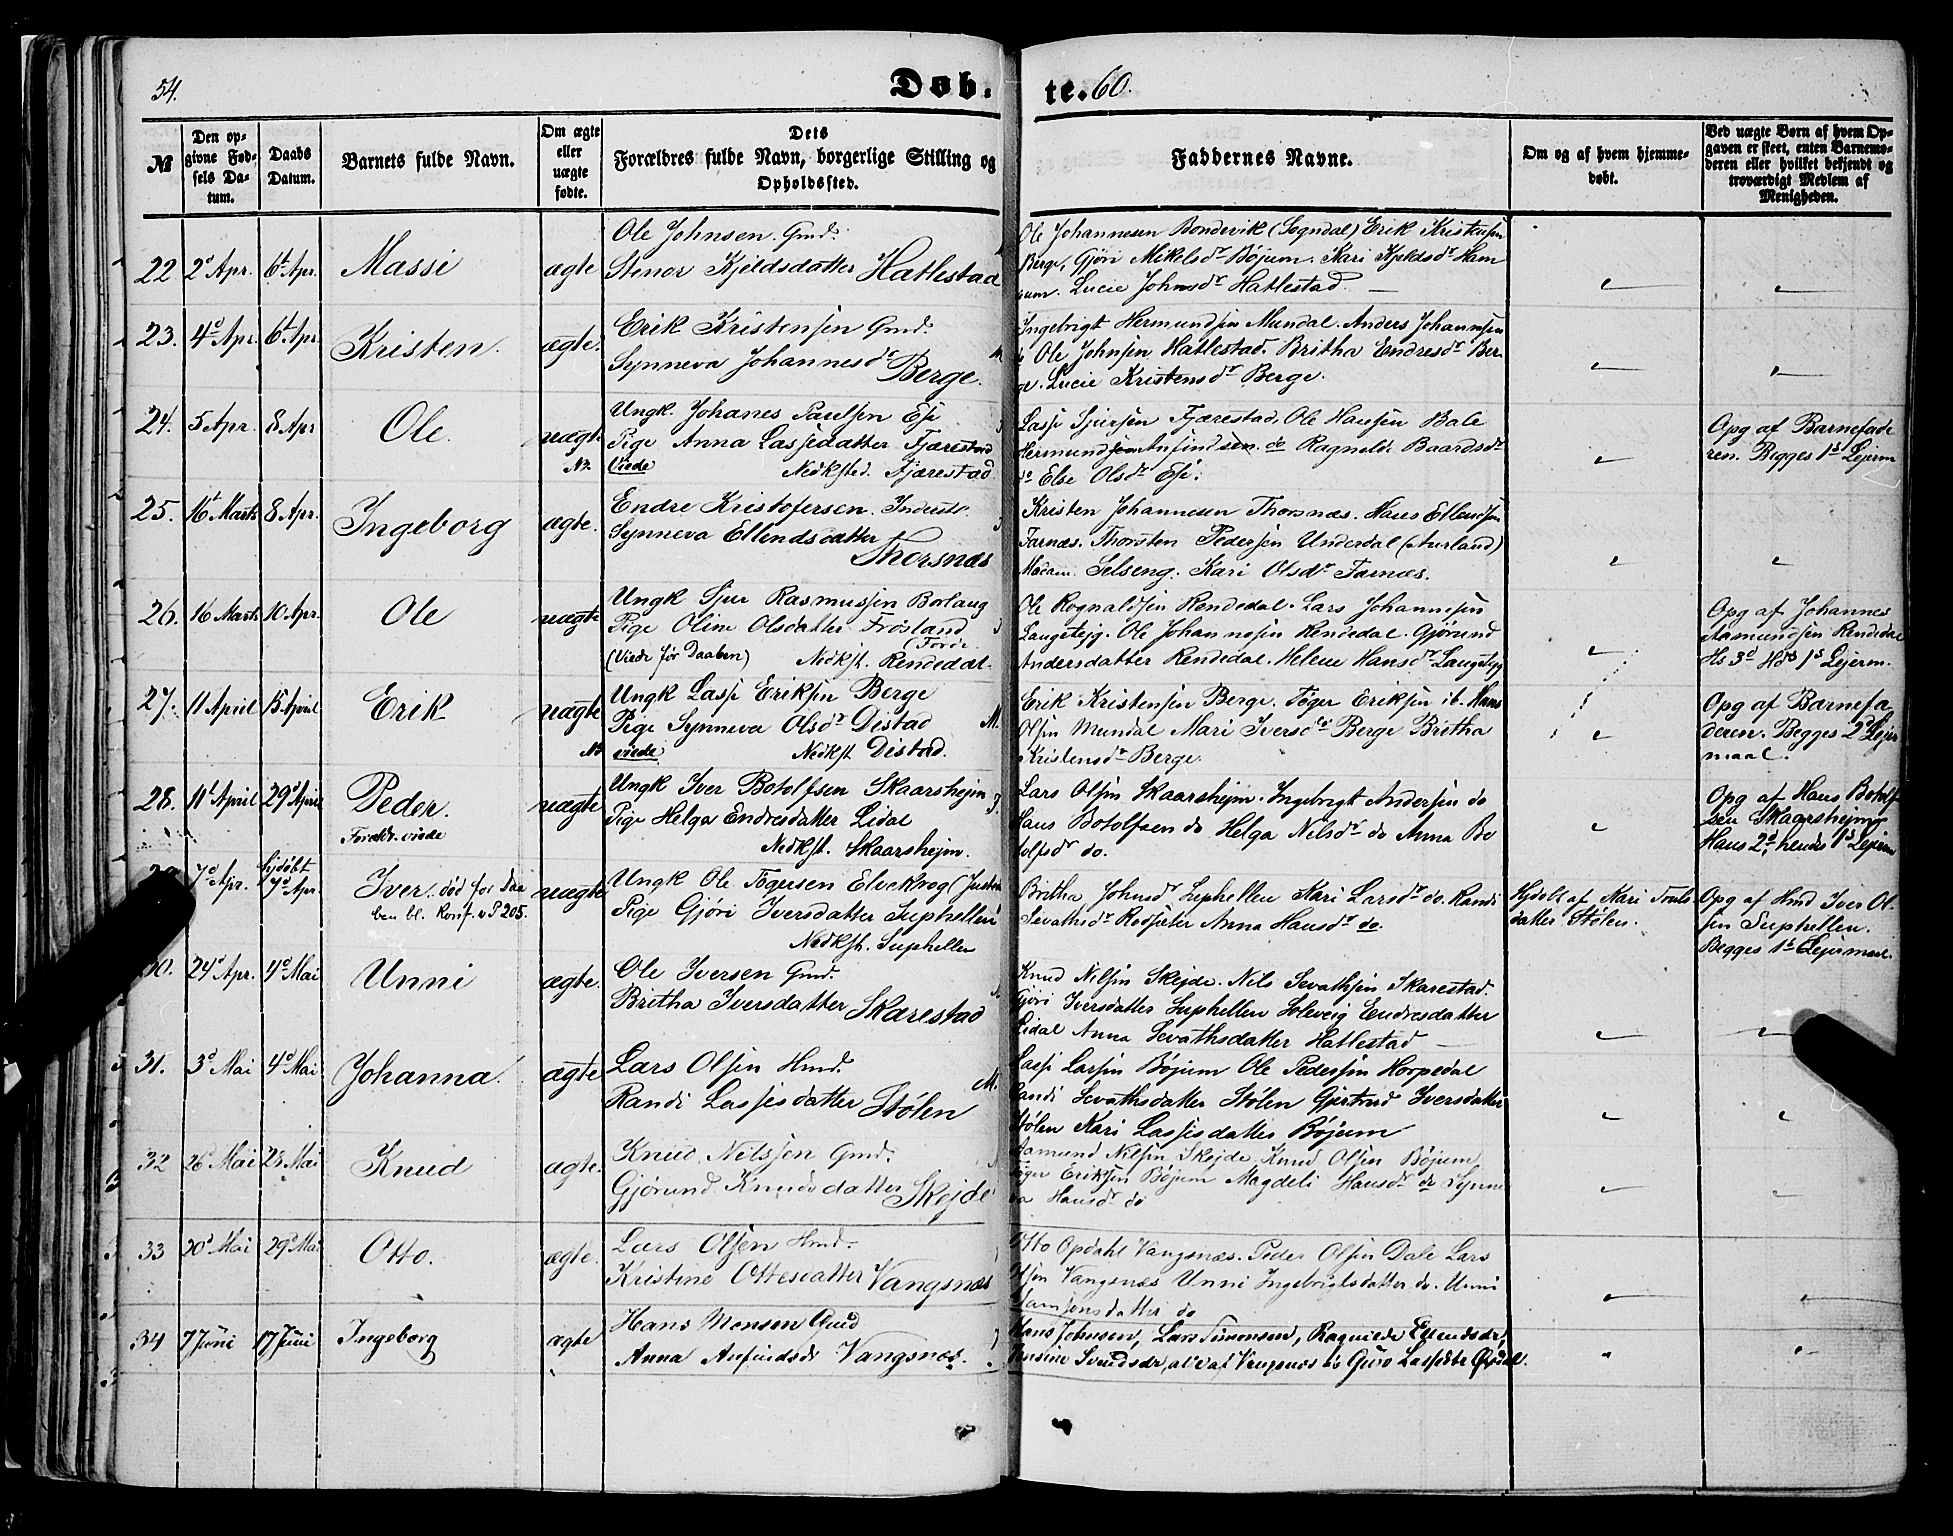 54.
Døb-
te. 60.
№
Den op-
givne Fød-
sels Da-
tum.
Daabs
Datum.
Barnets fulde Navn.
Om ægte
eller
uægte
fødte.
Dets
Forældres fulde Navn, borgerlige Stilling og
Opholdssted.
Faddernes Navne.
Om og af hvem hjemme-
døbt.
Ved uægte Børn af hvem Op-
gaven er skeet, enten Barnemo-
deren eller hvilket bekjendt og
troværdigt Medlem af
Menigheden.
22 2d Apr. 6t Apr. Massi ægte
Ole Johnsen. Gmd.
Stenor Kjeldsdatter Hatlestad
Ole Johannesen Bondevik (Sogndal) Erik Kristensen
Berge, Gjøri Mikelsdr Bøjum. Kari Kjeldsdr Ham
gum. Lucie Johnsdr Hatlestad. —
23. 4d Apr. 6t Apr. Kristen. ægte.
Erik Kristensen Gmd.
Synneva Johannesdr Berge.
Ingebrigt Hermundsen Mundal. Anders Johannsen
Ole Johnsen Hatlestad. Britha Endresdr Ber-
ge. Lucie Kristensdr Berge.
24. 5 Apr. 8 Apr Ole. uægte
Ungk. Johanes Paulsen Ese
Pige Anna Lassedatter Fjærestad
Nb. Viede Nedkfsted. Fjærestad
Lasse Sjursen Fjærestad. Ole Hansen Bale
Hermundsen Anfindsen. do Ragnilde Baardsdr
do Else Olsdr Ese.
Opg af Barnefade
ren. Begges 1s Lejerm
25. 16t Marts 8 Apr. Ingeborg ægte.
Endre Kristofersen. Inderst.
Synneva Ellendsdatter
Thorsnæs
Kristen Johannesen Thorsnæs. Hans Ellendsen
Farnæs. Thorsten Pedersen Underdal (Aurland)
Madam. Selseng. Kari Olsdr Farnæs.
26. 16 Marts 10 Apr. Ole uægte
Ungk Sjur Rasmussen Borlaug
Pige Oline Olsdatter Frøsland
(Førde.
(Viede før Daaben) Nedkft. Rendedal.
Ole Rognaldsen Rendedal. Lars Johannesen
Laugesteg. Ole Johannesen Rendedal. Gjørund
Andersdatter Rendedal. Helene Hansdr Laugesteg
Opg af Johannes
Aamundsen Rendedal
Hs 3d Hds 1s Lejerm.
27. 11 April 15 April Erik uægte
Ungk Lasse Eriksen Berge
Pige Synneva Olsdr Distad M.
Nb viede Nedkft Distad.
Erik Kristensen Berge. Tøger Eriksen ib. Hans
Olsen Mundal Mari Iversdr Berge Britha
Kristensdr Berge.
Opg af Barnefa
deren. Begges 2d Lejer
maal.
28. 11t April 29d April Peder. uægte
Foreldr. viede
Ungk Iver Botolfsen Skaarshejm
Pige Helga Endresdatter Lidal
Nedkft. Skaarshejm.
Lars Olsen Skaarshejm. Ingebrigt Andersen do
Hans Botolfsen do Helga Nilsdr do Anna Bo
tolfsdr do.
Opg af Hans Botolf
sen Skaarshejm
Hans 2d, hendes 1s Lejerm
7d Apr. hjdøbt
7d Apr. Iver død før Daa
ben bl. Konf. uægte
P 205.
Ungk Ole Tøgersen Elvekrog (Justedal
Pige Gjøri Iversdatter Suphellen
Nedkft. Suphellen
Britha Johnsdr Suphellen Kari Larsdr do. Randi
Sevathsdr Rødseter Anna Hansdr do.
Hjdøbt af Kari Truls
datter Stølen.
Opg af Hmd Iver Ol-
sen Suphellen.
Begges 1s Lejermaal.
30. 24d Apr. 4d Mai Unni ægte.
Ole Iversen Gmd.
Britha Iversdatter Skarestad
Knud Nilsen Skejde. Nils Sevathsen Skarestad.
Gjøri Iversdatter Suphellen Solveig Endresdatter
Lidal Anna Sevathsdatter Hatlestad —
31. 3d Mai 4d Mai Johanna. ægte
Lars Olsen Hmd.
Randi Lassesdatter Stølen M.
Lasse Larsen Bøjum Ole Pedersen Horpedal
Randi Sevathsdatter Stølen Gjertrud Iversdatter
Stølen Kari Lassesdatter Bøjum
32 26d Mai 28 Mai Knud ægte.
Knud Nilssen Gmd.
Gjørund Knudsdatter Skejde
Aamund Nilsen Skejde Knud Olsen Bøjum
Tøger Eriksen Bøjum Magdeli Hansdr do Synne
va Hansdr do
33 20d Mai 29d Mai Otto. ægte.
Lars Olsen Hmd.
Kristine Ottesdatter Vangsnæs
Otto Opdahl Vangsnæs. Peder Olsen Dale Lars
Olsen Vangsnæs Unni Ingebrigtsdatter do. Unni
Samsonsdatter do
34 7 Juni 17 Juni Ingeborg ægte
Hans Monsen Gmd
Anna Anfindsdr Vangsnæs.
Hans Johnsen, Lars Simonsen, Ragnilde Erlendsdr,
Svendsdr, alle af Vangsnæs og Guro Lassedtr